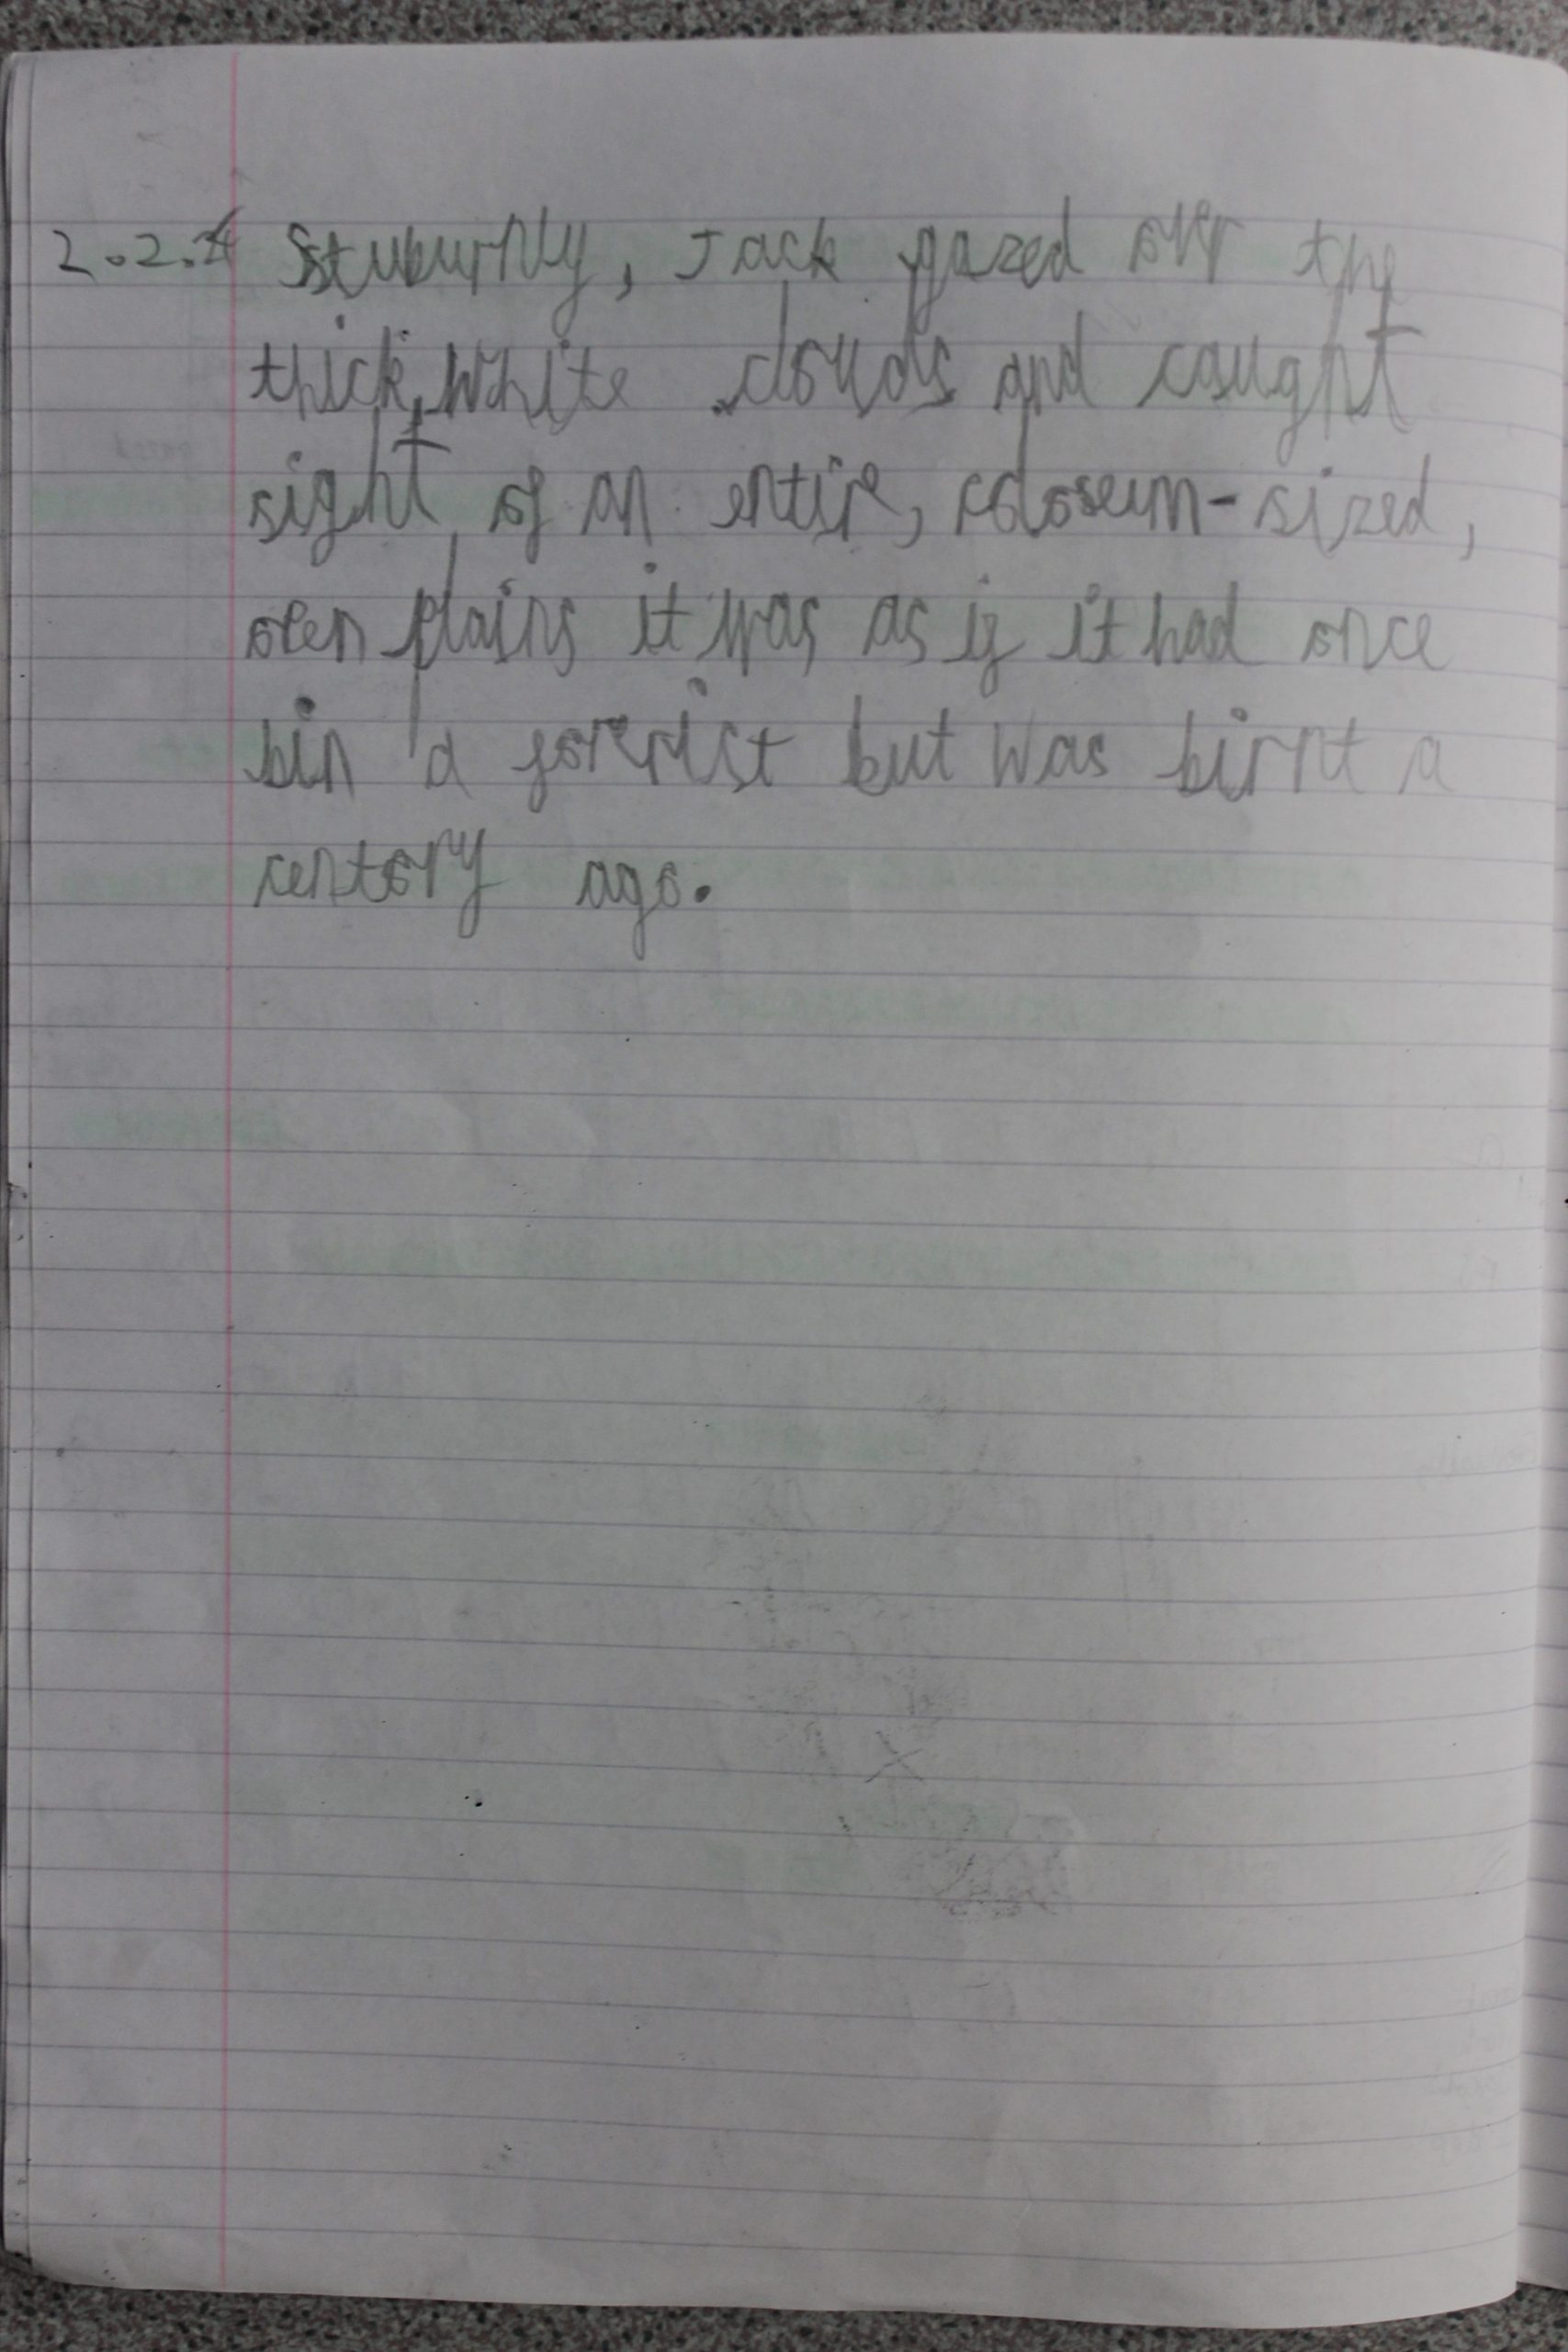 2.2.4 Stuburnly, Jack gazed ovr the
thick, white clouds and caught
sight of an entire, coloseum-sized,
open plains it was as if it had once
bin a forrist but was birnt a
centory ago.